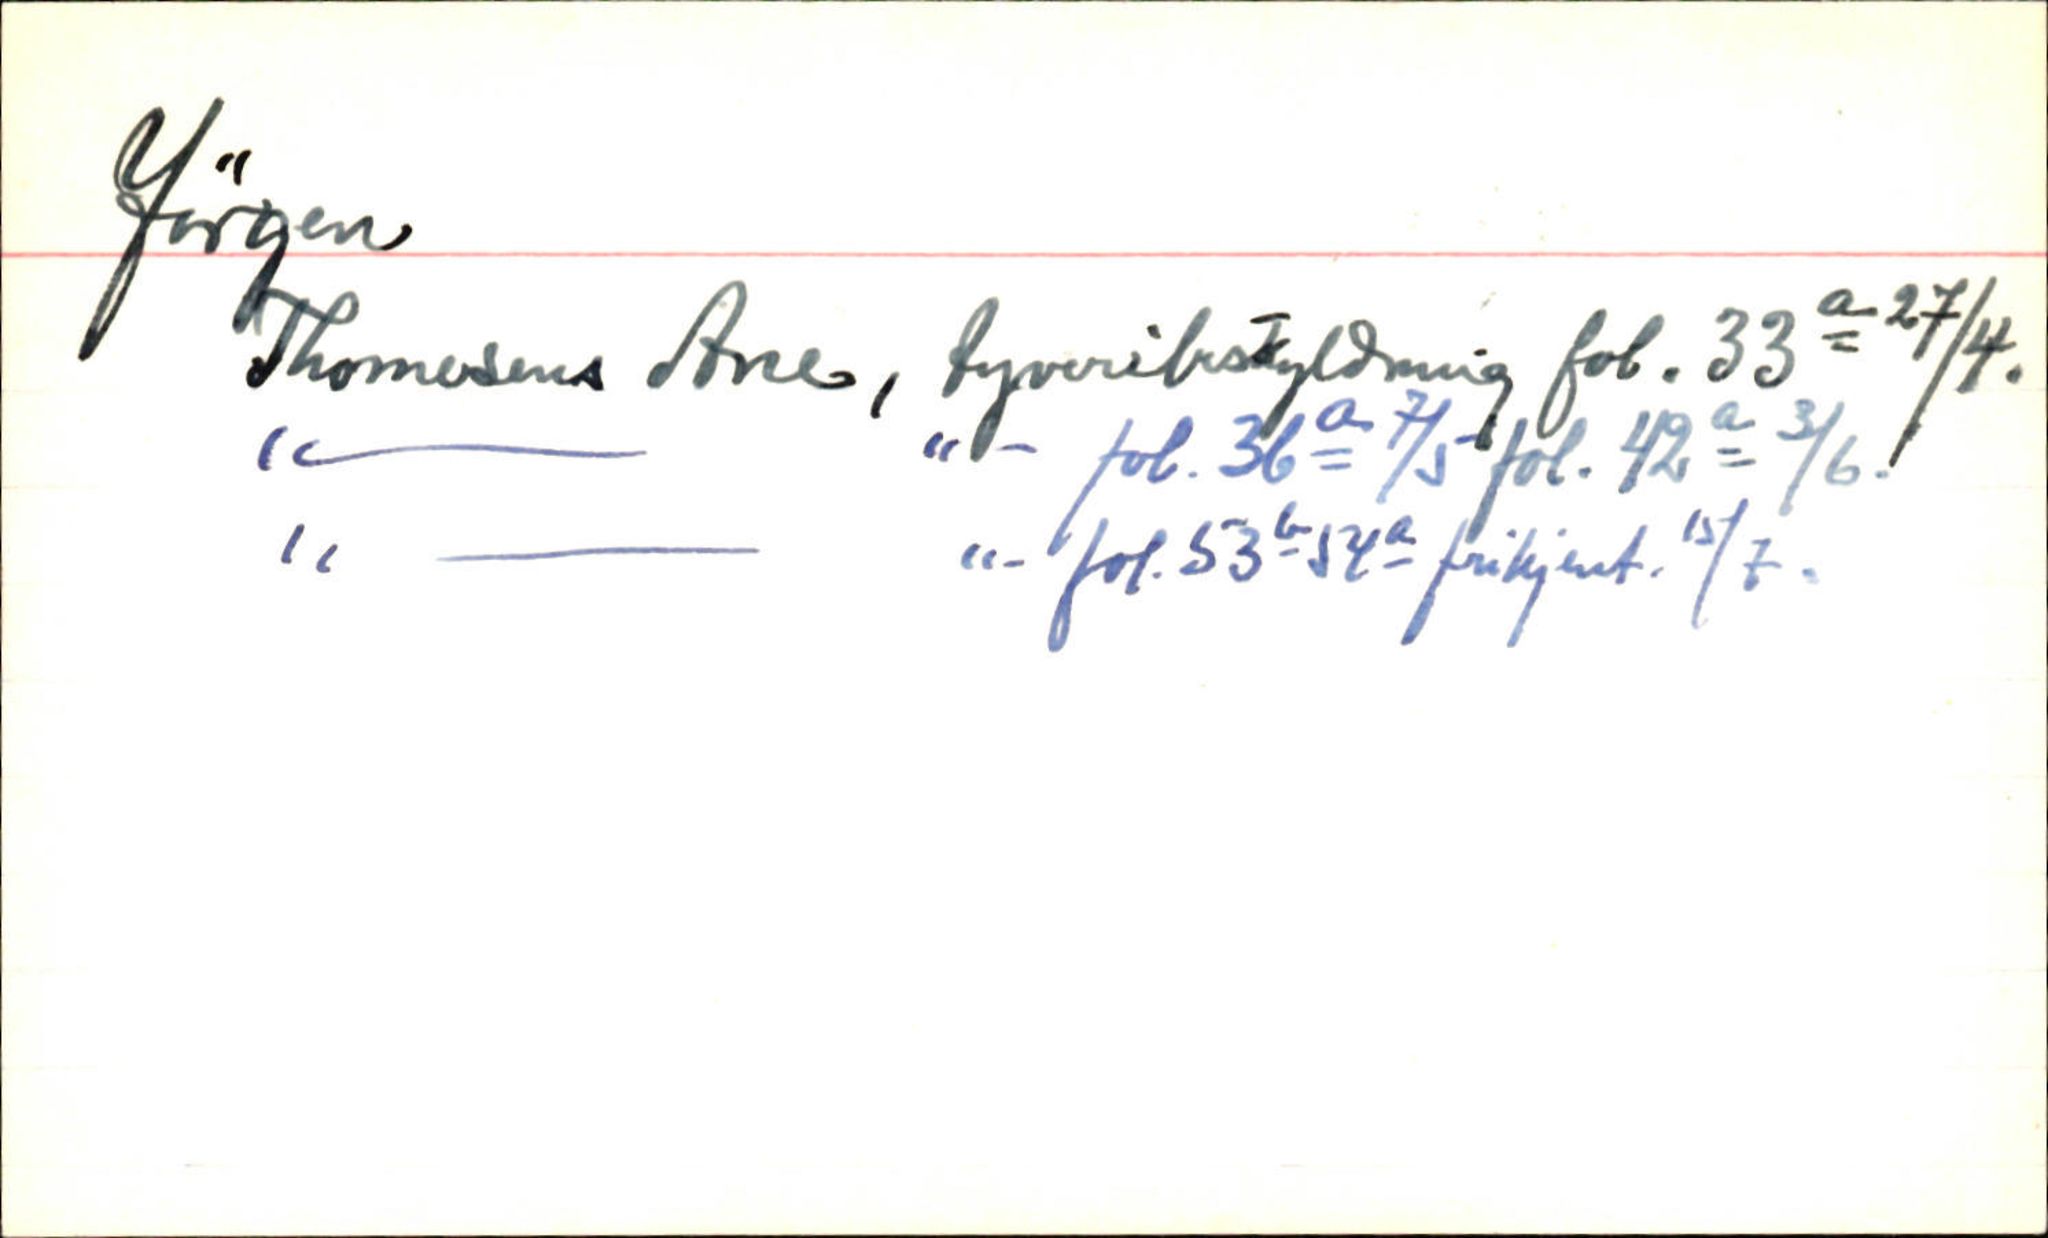 Jörgen
Thomesens Ane, tyveribeskyldning fol. 33a 27/4.
" — " - fol. 36a 7/5 fol. 42a 3/6.
" — " - fol. 53b-54a frikjent. 15/7.